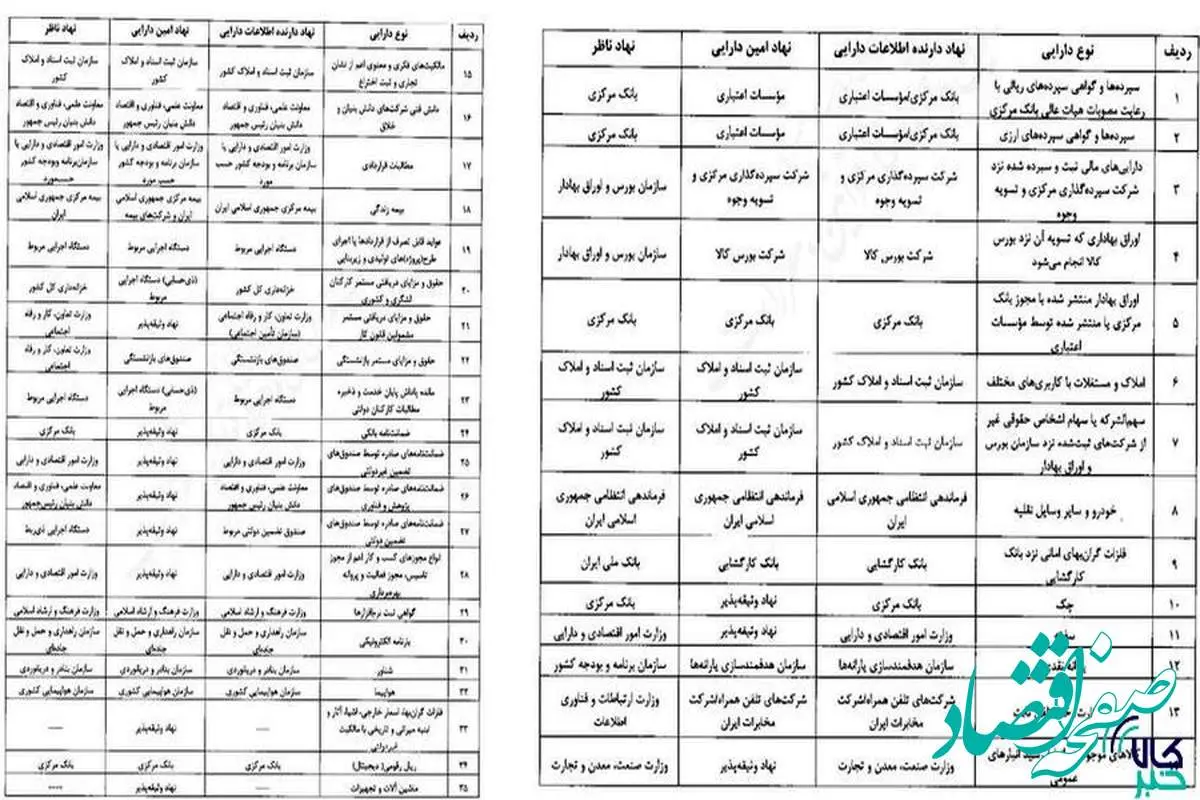 ردیف نوع دارایی نهاد دارنده اطلاعات دارایی نهاد امین دارایی نهاد ناظر
۱ سپرده‌ها و گواهی سپرده‌های ریالی با رعایت مصوبات هیات عالی بانک مرکزی بانک مرکزی/مؤسسات اعتباری مؤسسات اعتباری بانک مرکزی
۲ سپرده‌ها و گواهی سپرده‌های ارزی بانک مرکزی/مؤسسات اعتباری مؤسسات اعتباری بانک مرکزی
۳ دارایی‌های مالی ثبت و سپرده شده نزد شرکت سپرده‌گذاری مرکزی و تسویه وجوه شرکت سپرده‌گذاری مرکزی و تسویه وجوه شرکت سپرده‌گذاری مرکزی و تسویه وجوه سازمان بورس و اوراق بهادار
۴ اوراق بهاداری که تسویه آن نزد بورس کالا انجام می‌شود شرکت بورس کالا شرکت بورس کالا سازمان بورس و اوراق بهادار
۵ اوراق بهادار منتشر شده با مجوز بانک مرکزی یا منتشر شده توسط مؤسسات اعتباری بانک مرکزی بانک مرکزی بانک مرکزی
۶ املاک و مستغلات با کاربری‌های مختلف سازمان ثبت اسناد و املاک کشور سازمان ثبت اسناد و املاک کشور سازمان ثبت اسناد و املاک کشور
۷ سهم‌الشرکه یا سهام اشخاص حقوقی غیر از شرکت‌های ثبت‌شده نزد سازمان بورس و اوراق بهادار سازمان ثبت اسناد و املاک کشور سازمان ثبت اسناد و املاک کشور سازمان ثبت اسناد و املاک کشور
۸ خودرو و سایر وسایل نقلیه فرماندهی انتظامی جمهوری اسلامی ایران فرماندهی انتظامی جمهوری اسلامی ایران فرماندهی انتظامی جمهوری اسلامی ایران
۹ فلزات گران‌بهای امانی نزد بانک کارگشایی بانک کارگشایی بانک کارگشایی بانک ملی ایران
۱۰ چک بانک مرکزی نهاد وثیقه‌پذیر بانک مرکزی
۱۱ وزارت امور اقتصادی و دارایی نهاد وثیقه‌پذیر وزارت امور اقتصادی و دارایی
۱۲ سازمان هدفمندسازی یارانه‌ها سازمان هدفمندسازی یارانه‌ها سازمان برنامه و بودجه کشور
۱۳ شرکت‌های تلفن همراه/شرکت مخابرات ایران شرکت‌های تلفن همراه/شرکت مخابرات ایران وزارت ارتباطات و فناوری اطلاعات
انبارهای عمومی وزارت صنعت، معدن و تجارت نهاد وثیقه‌پذیر وزارت صنعت، معدن و تجارت
صفحه اقتصاد
کالا خبر
ردیف نوع دارایی نهاد دارنده اطلاعات دارایی نهاد امین دارایی نهاد ناظر
۱۵ مالکیت‌های فکری و معنوی اعم از نشان تجاری و ثبت اختراع سازمان ثبت اسناد و املاک کشور سازمان ثبت اسناد و املاک کشور سازمان ثبت اسناد و املاک کشور
۱۶ دانش فنی شرکت‌های دانش بنیان و خلاق معاونت علمی، فناوری و اقتصاد دانش بنیان رئیس جمهور معاونت علمی، فناوری و اقتصاد دانش بنیان رئیس جمهور معاونت علمی، فناوری و اقتصاد دانش بنیان رئیس جمهور
۱۷ مطالبات قراردادی وزارت امور اقتصادی و دارایی یا سازمان برنامه و بودجه کشور حسب مورد وزارت امور اقتصادی و دارایی یا سازمان برنامه و بودجه کشور حسب مورد وزارت امور اقتصادی و دارایی یا سازمان‌برنامه وبودجه کشور حسب‌مورد
۱۸ بیمه زندگی بیمه مرکزی جمهوری اسلامی ایران بیمه مرکزی جمهوری اسلامی ایران و شرکت‌های بیمه بیمه مرکزی جمهوری اسلامی ایران
۱۹ عواید قابل تصرف از قراردادها یا اجرای طرح(پروژه)های تولیدی و زیربنایی دستگاه اجرایی مربوط دستگاه اجرایی مربوط دستگاه اجرایی مربوط
۲۰ حقوق و مزایای دریافتی مستمر کارکنان لشگری و کشوری خزانه‌داری کل کشور (ذی‌حسابی) دستگاه اجرایی مربوط خزانه‌داری کل کشور
۲۱ حقوق و مزایای دریافتی مستمر مشمولین قانون کار وزارت تعاون، کار و رفاه اجتماعی (سازمان تأمین اجتماعی) نهاد وثیقه‌پذیر وزارت تعاون، کار و رفاه اجتماعی
۲۲ حقوق و مزایای مستمر بازنشستگی صندوق‌های بازنشستگی صندوق‌های بازنشستگی وزارت تعاون، کار و رفاه اجتماعی
۲۳ مانده پاداش پایان خدمت و ذخیره مطالبات کارکنان دولتی دستگاه اجرایی مربوط (ذی‌حسابی) دستگاه اجرایی مربوط دستگاه اجرایی مربوط
۲۴ ضمانت‌نامه بانکی بانک مرکزی نهاد وثیقه‌پذیر بانک مرکزی
۲۵ ضمانت‌نامه‌های صادره توسط صندوق‌های تضمین غیردولتی وزارت امور اقتصادی و دارایی نهاد وثیقه‌پذیر وزارت امور اقتصادی و دارایی
۲۶ ضمانت‌نامه‌های صادره توسط صندوق‌های پژوهش و فناوری معاونت علمی، فناوری و اقتصاد دانش بنیان رئیس جمهور نهاد وثیقه‌پذیر معاونت علمی، فناوری و اقتصاد دانش بنیان رئیس‌جمهور
۲۷ ضمانت‌نامه‌های صادره توسط صندوق‌های تضمین دولتی صندوق تضمین دولتی مربوط نهاد وثیقه‌پذیر دستگاه اجرایی ذی‌ربط
۲۸ انواع مجوزهای کسب و کار اعم از مجوز تاسیس، مجوز فعالیت و پروانه بهره‌برداری وزارت امور اقتصادی و دارایی نهاد وثیقه‌پذیر وزارت امور اقتصادی و دارایی
۲۹ گواهی ثبت نرم‌افزارها وزارت فرهنگ و ارشاد اسلامی وزارت فرهنگ و ارشاد اسلامی وزارت فرهنگ و ارشاد اسلامی
۳۰ بارنامه الکترونیکی سازمان راهداری و حمل و نقل جاده‌ای سازمان راهداری و حمل و نقل جاده‌ای سازمان راهداری و حمل و نقل جاده‌ای
۳۱ شناور سازمان بنادر و دریانوردی سازمان بنادر و دریانوردی سازمان بنادر و دریانوردی
۳۲ هواپیما سازمان هواپیمایی کشوری سازمان هواپیمایی کشوری سازمان هواپیمایی کشوری
۳۳ فلزات گران‌بها، اسعار خارجی، اشیاء، آثار و ابنیه میراثی و تاریخی با مالکیت غیردولتی ---- نهاد وثیقه‌پذیر ----
۳۴ ریال رقومی( دیجیتال) بانک مرکزی بانک مرکزی بانک مرکزی
۳۵ ماشین آلات و تجهیزات ---- نهاد وثیقه‌پذیر ----